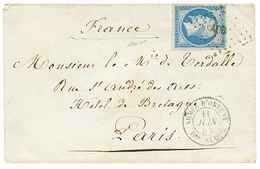 France
Monsieur le Mis de Verdalle
Rue St André des arts
Hotel de Bretagne
Paris
ARMÉE D'ORIENT
11
JUIN